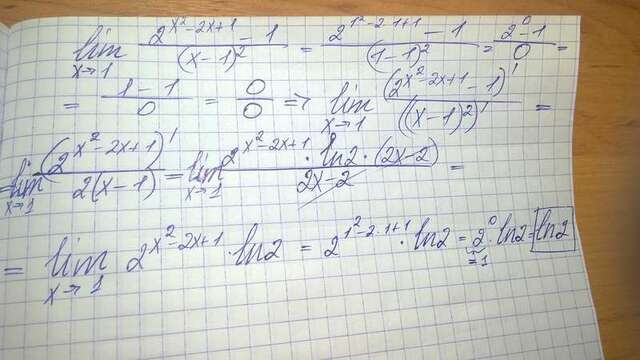 lim x→1 (2^(x²-2x+1) - 1)/(x-1)² = (2^(1²-2·1+1) - 1)/(1-1)² = (2⁰-1)/0 =
= (1-1)/0 = 0/0 => lim x→1 (2^(x²-2x+1) - 1)'/((x-1)²)' =
= lim x→1 (2^(x²-2x+1))'/(2(x-1)) = lim x→1 (2^(x²-2x+1) · ln2 · (2x-2))/(2x-2) =
= lim x→1 2^(x²-2x+1) · ln2 = 2^(1²-2·1+1) · ln2 = 2⁰ · ln2 = ln2
=1